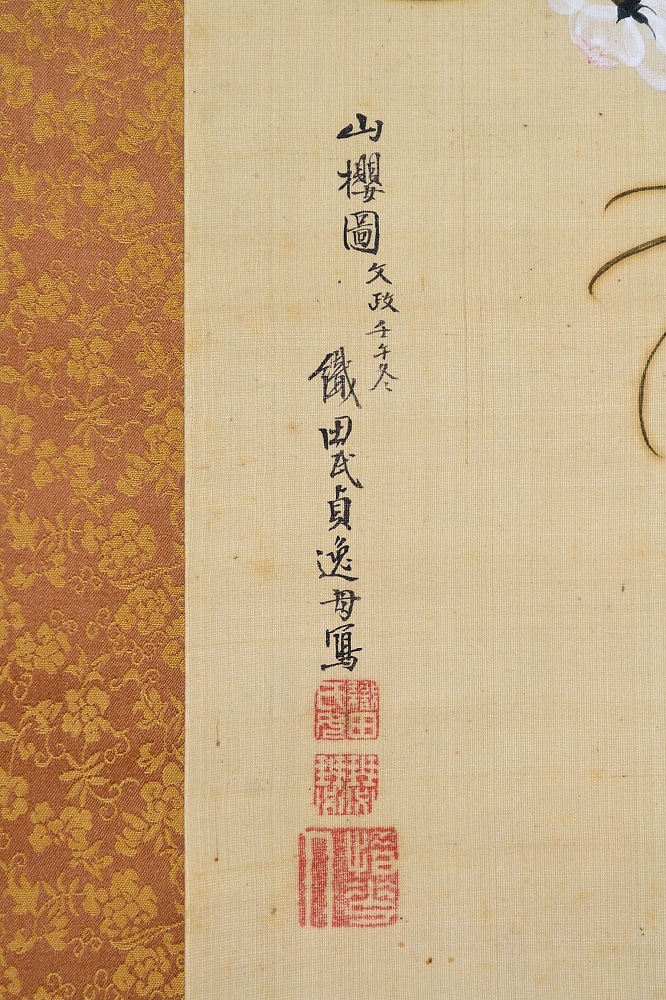 山櫻圖
文政壬午冬
織田氏貞逸母寫